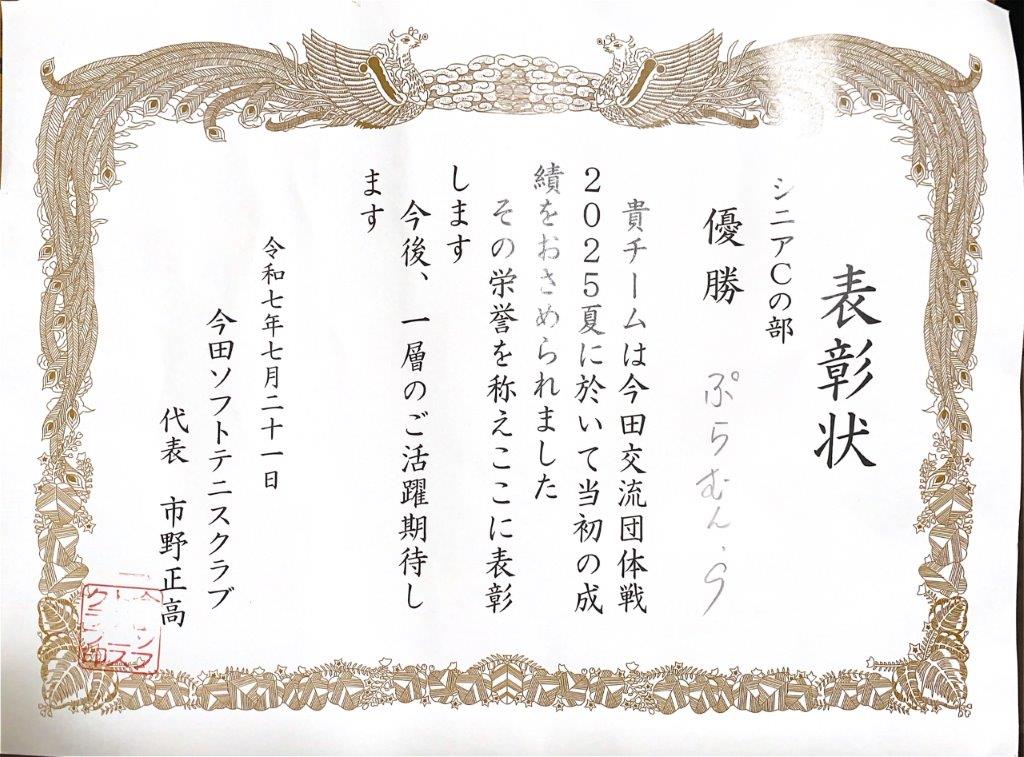 表彰状
シニアCの部
優勝 ぷらむん.ら
貴チームは今田交流団体戦
2025夏に於いて当初の成
績をおさめられました
その栄誉を称えここに表彰
します
今後、一層のご活躍期待し
ます
令和七年七月二十一日
今田ソフトテニスクラブ
代表 市野正高